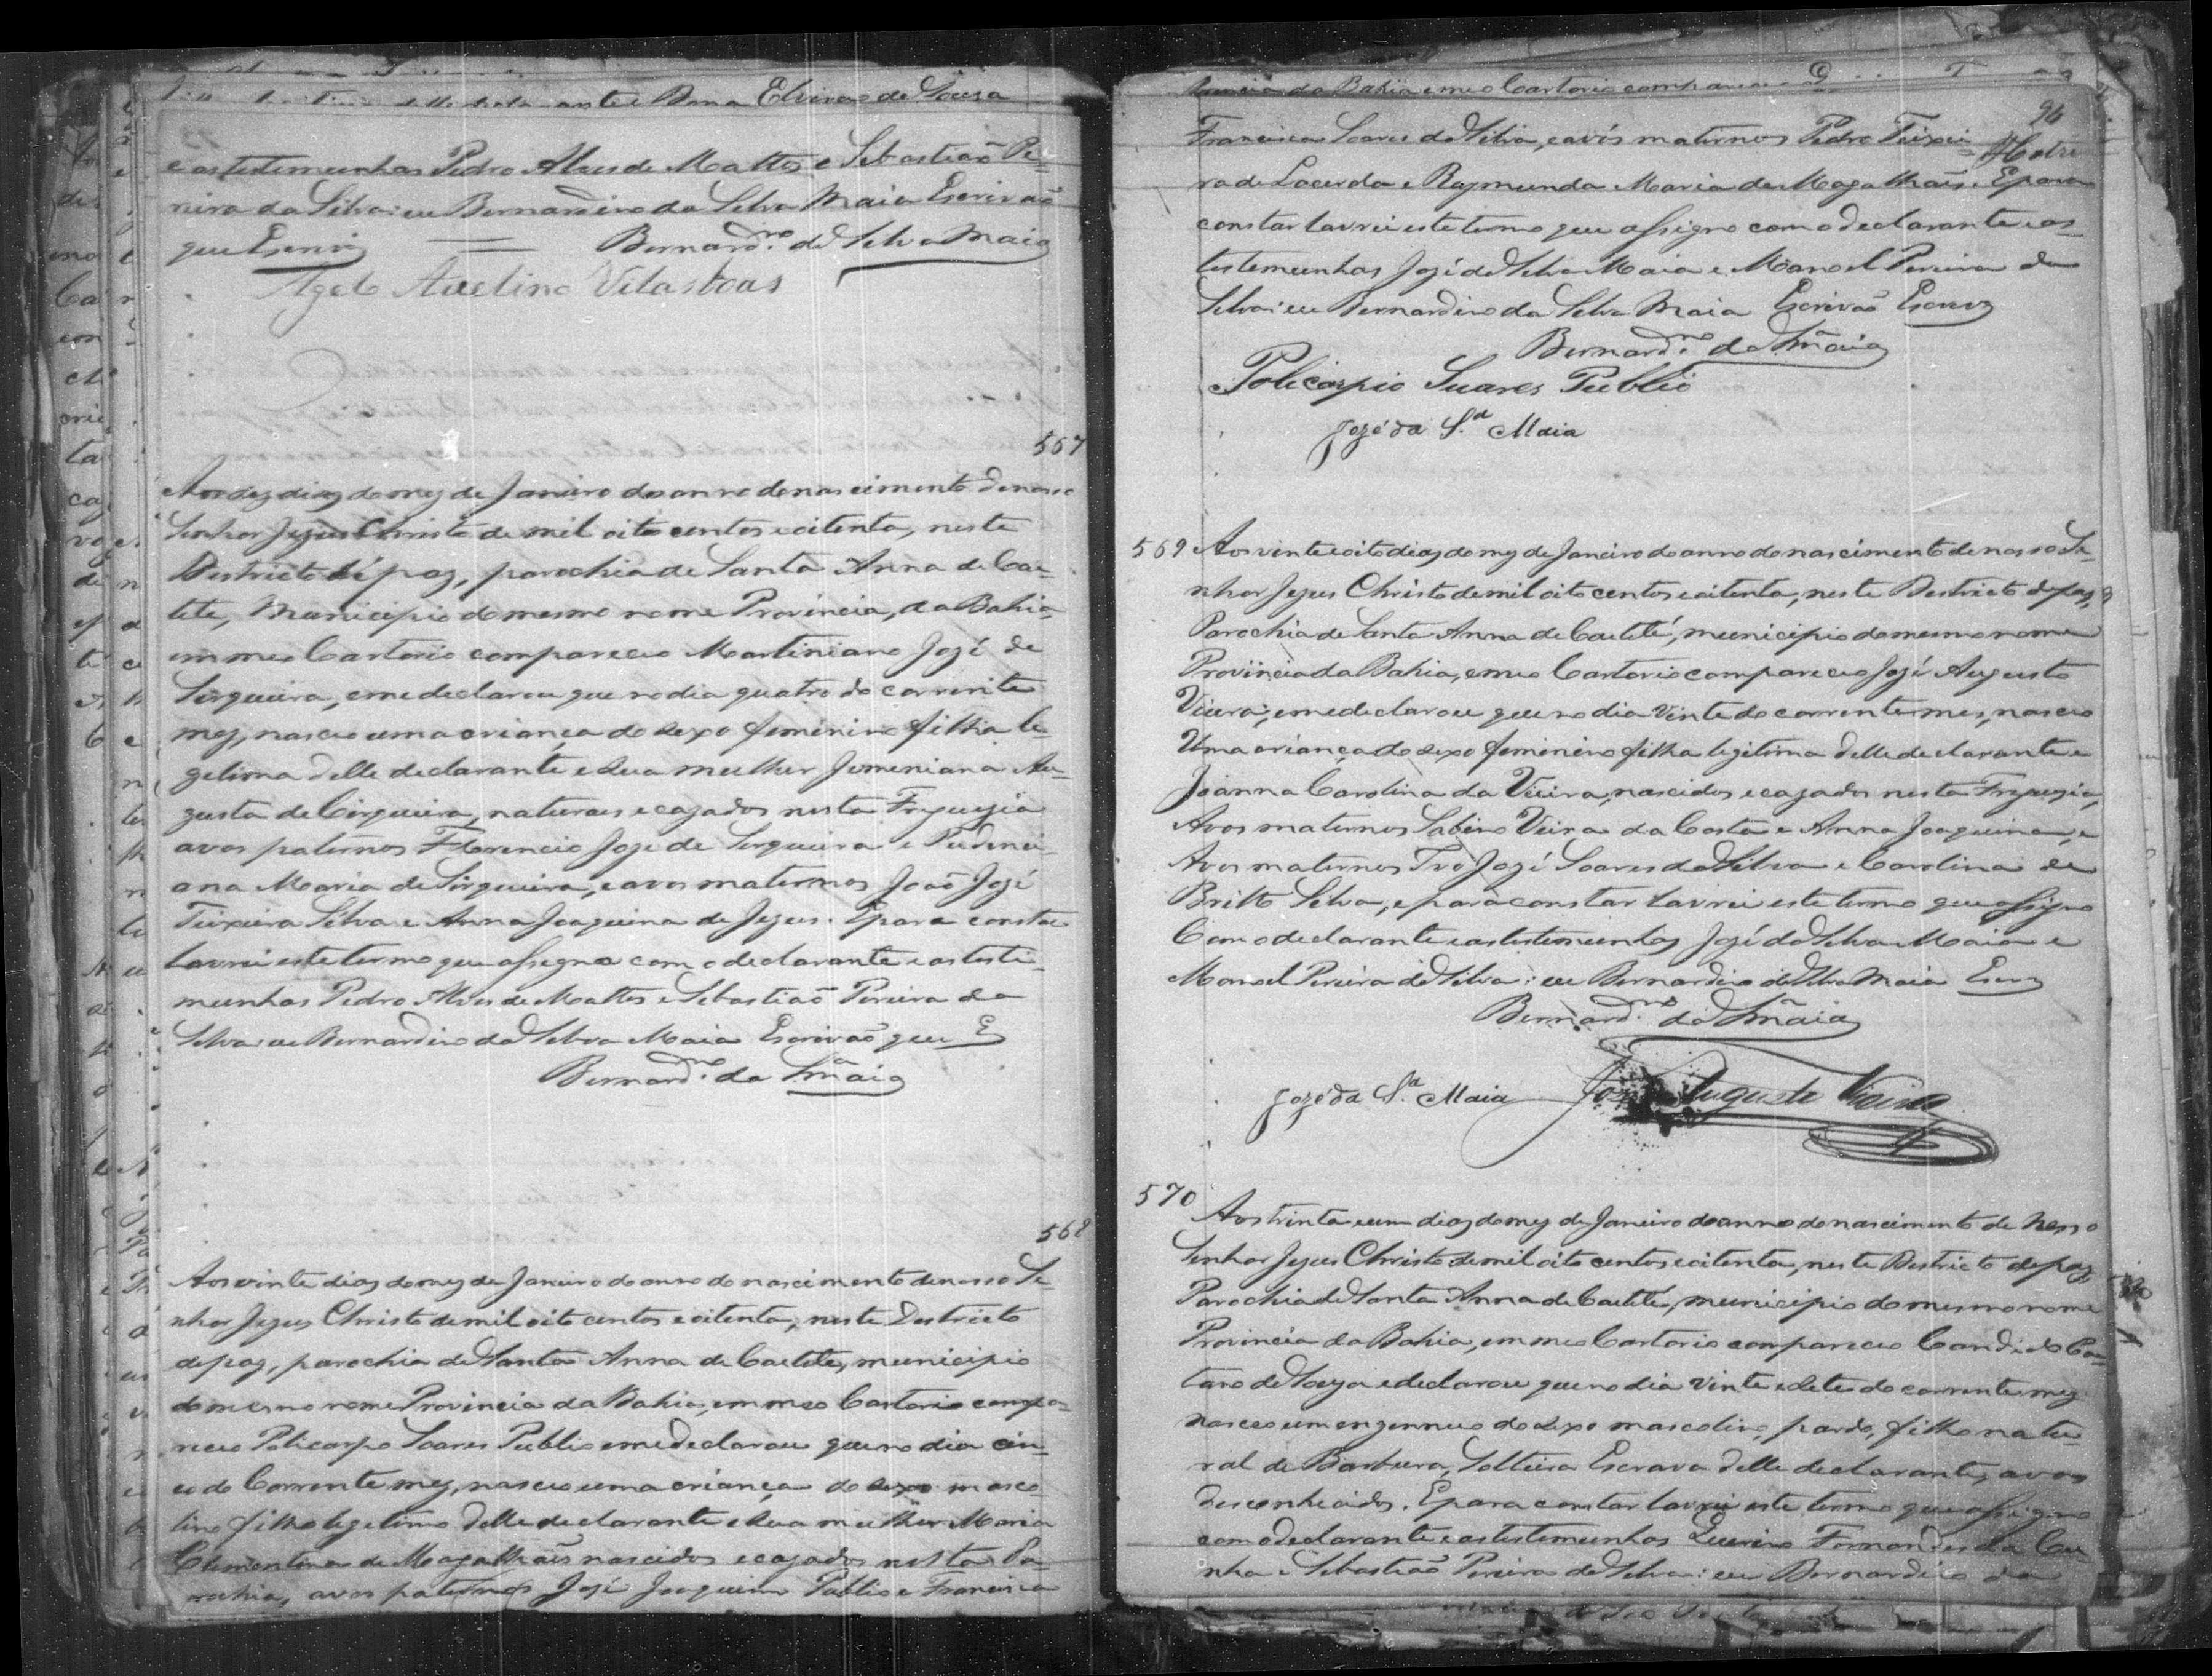 e as testemunhas Pedro Alves de Mattos e Sebastião Pe-
reira da Silva: eu Bernardino da Silva Maia Escrivão
que Escrevi Bernard.no da Silva Maia
Avelino Vilasboas
567
Aos dez dias do mez de Janeiro do anno do nascimento de nosso
Senhor Jezus Christo de mil oito centos e oitenta, neste
Destricto de paz, parochia de Santa Anna de Cae-
tete, Municipio do mesmo nome Provincia, da Bahia
em meo Cartorio compareceo Martiniano Jozé de
Sirqueira, e me declarou que no dia quatro do corrente
mez, nasceo uma criança do sexo feminino filha le-
getima delle declarante e sua mulher Jemeniana Au-
gusta de Cirqueira, naturaes e cazados nesta Freguezia
avos paternos Florencio Joze de Sirqueira e Pudenci-
ana Maria de Sirqueira, e avos maternos João Jozé
Teixeira Silva e Anna Joaquina de Jezus. E para constar
lavrei este termo que assigno com o declarante e as teste-
munhas Pedro Alves de Mattos e Sebastião Pereira da
Silva: eu Bernardino da Silva Maia Escrivão que E
Bernard.no da Sª Maia
568
Aos vinte dias do mez de Janeiro do anno do nascimento de nosso Se-
nhor Jezus Christo de mil oito centos e oitenta, neste Destricto
de paz, parochia de Santa Anna de Caetete, municipio
do mesmo nome Provincia da Bahia, em meo Cartorio compa-
receo Policarpo Soares Publio e me declarou que no dia cin-
co do Corrente mez, nasceo uma criança do sexo masco-
lino filho legetimo delle declarante e sua mulher Maria
Clementina de Magalhães nascidos e cazados nesta Pa-
rochia, avos paternos Jozé Joaquim Publio e Francisca
96
Francisca Soares da Silva, e avós maternos Pedro Teixei-
ra de Lacerda e Raymunda Maria de Magalhães. E para
constar lavrei este termo que assigno com o declarante e as
testemunhas Jozé da Silva Maia e Manoel Pereira da
Silva: eu Bernardino da Silva Maia Escrivão Escrevy
Bernard.no da Sª Maia
Policarpio Suares Publio
Jozé da S.ª Maia
569 Aos vinte e oito dias do mez de Janeiro do anno do nascimento de nosso Se-
nhor Jezus Christo de mil oito centos e oitenta, neste Destricto de paz,
Parochia de Santa Anna de Caetité, municipio do mesmo nome
Provincia da Bahia, em meo Cartorio compareceo Jozé Augusto
Vieira; e me declarou que no dia vinte do corrente mes, nasceo
Uma criança do sexo feminino filha legitima delle declarante e
Joanna Carolina da Vieira, nascidos e cazados nesta Freguezia,
Avos maternos Sabino Vieira da Costa e Anna Joaquina, e
Avos maternos Ivo Jozé Soares da Silva e Carolina de
Britto Silva, e para constar lavrei este termo que assigno
Com o declarante e as testemunhas Jozé da Silva Maia e
Manoel Pereira da Silva: eu Bernardino da Silva Maia Escrevy
Bernard.no da Sª Maia
Jozé da S.ª Maia José Augusto Vieira
570
Aos trinta e um dias do mez de Janeiro do anno do nascimento de Nosso
Senhor Jezus Christo de mil oito centos e oitenta, neste Destricto de paz
Parochia de Santa Anna de Caetité, municipio do mesmo nome
Provincia da Bahia, em meo Cartorio compareceo Candido Cae-
tano de Souza e declarou que no dia vinte e sete do corrente mez
nasceo um engennuo do sexo mascolino, pardo, filho natu-
ral de Barbara, Solteira Escrava delle declarante, avos
desconhecidos. E para constar lavrei este termo que assigno
com o declarante e as testemunhas Fernandes da Cu-
nha e Sebastião Pereira da Silva: eu Bernardino da